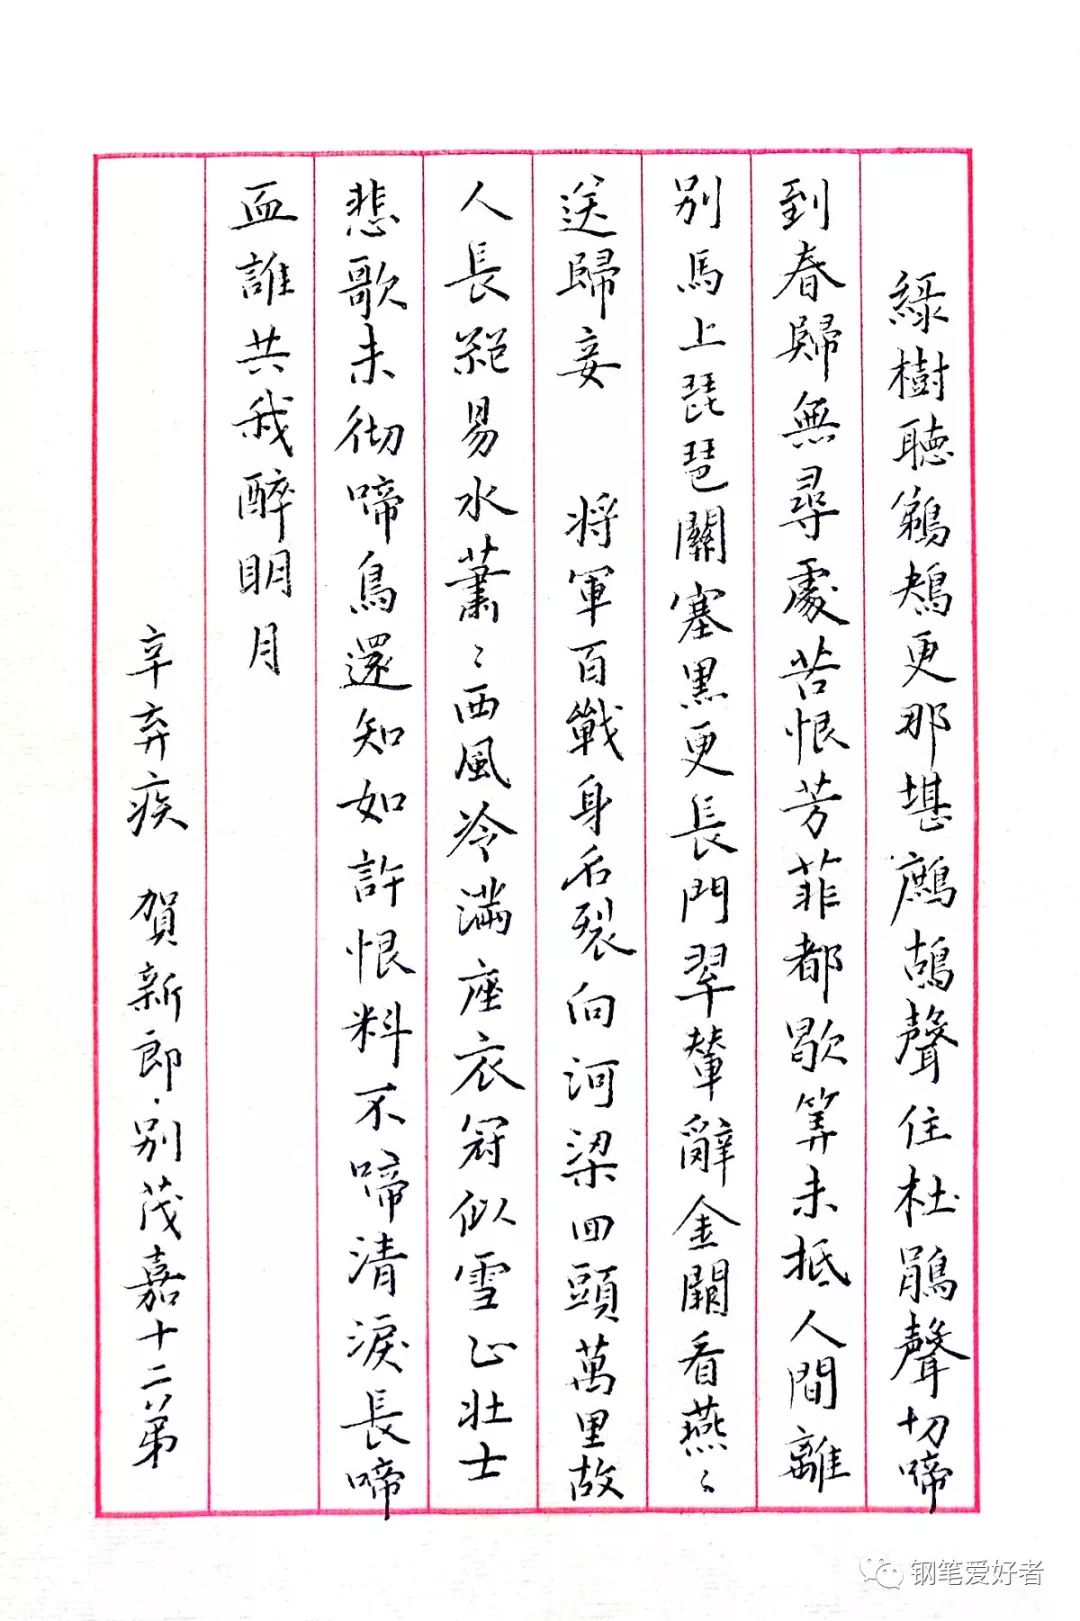 綠樹聽鵜鴂更那堪鷓鴣聲住杜鵑聲切啼
到春歸無尋處苦恨芳菲都歇筭未抵人間離
別馬上琵琶關塞黑更長門翠輦辭金闕看燕〻
送歸妾　將軍百戰身名裂向河梁回頭萬里故
人長絕易水蕭〻西風冷滿座衣冠似雪正壯士
悲歌未徹啼鳥還知如許恨料不啼清淚長啼
血誰共我醉明月
辛弃疾　賀新郎·別茂嘉十二弟
钢笔爱好者